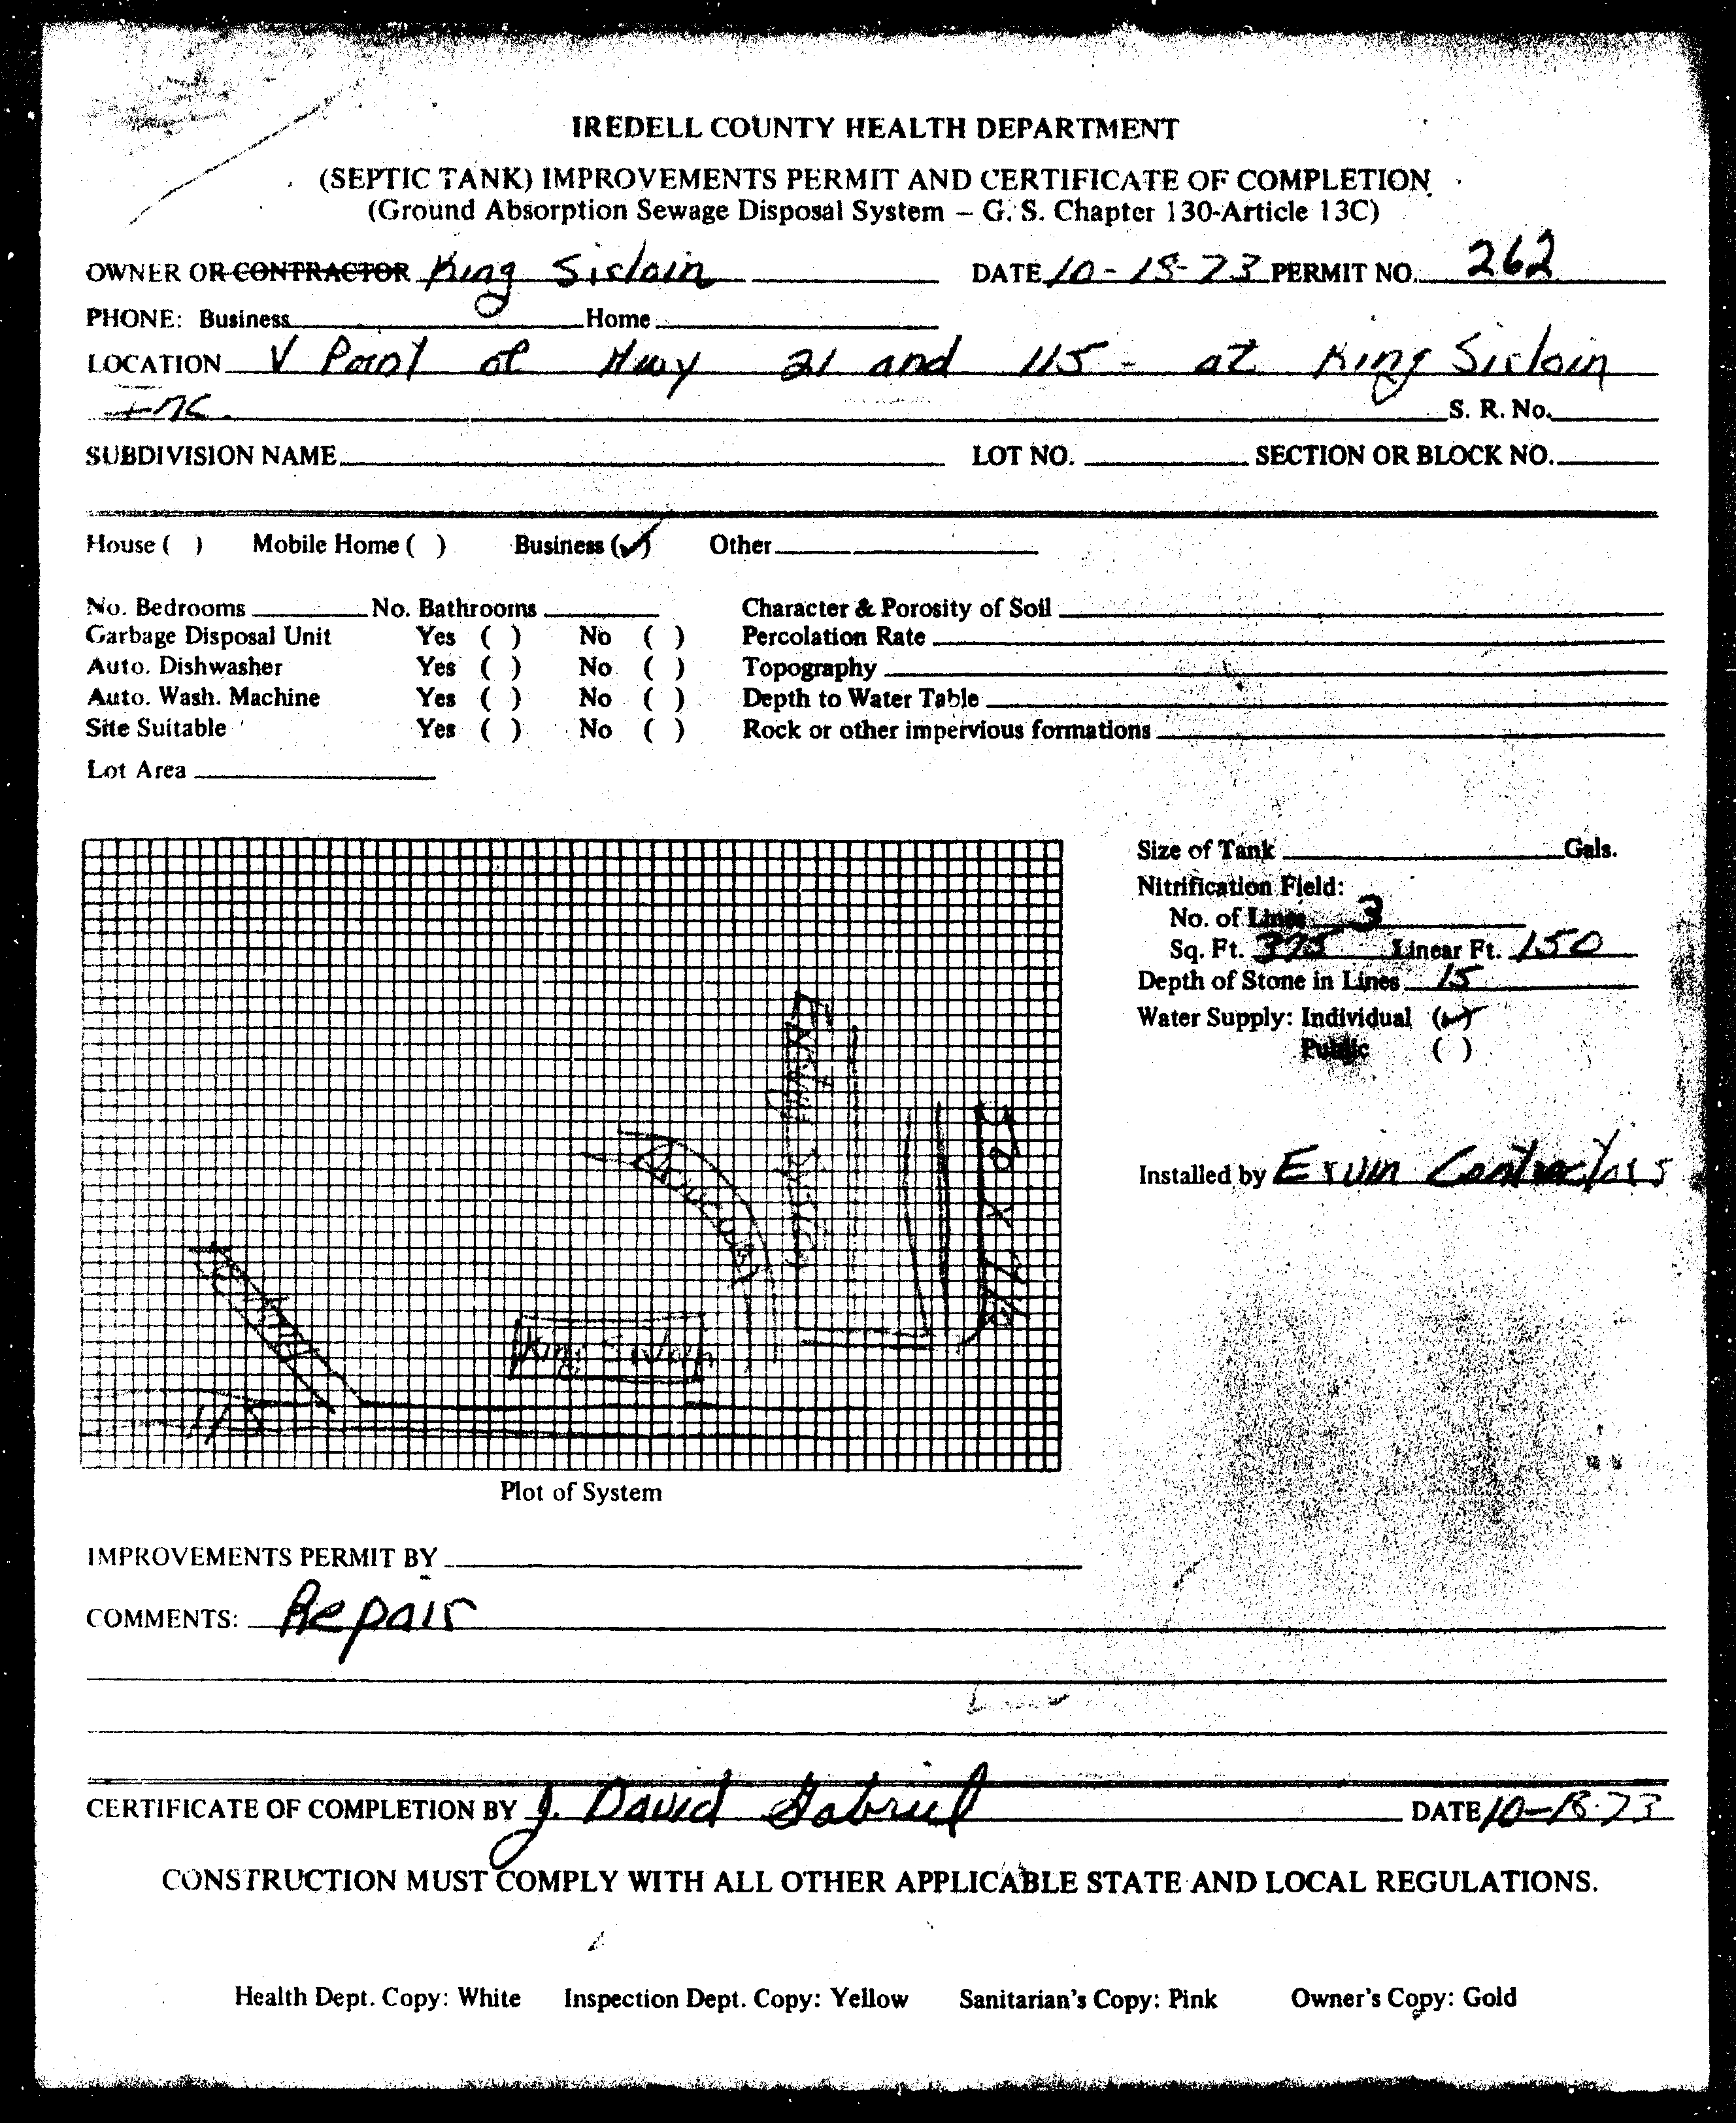 IREDELL COUNTY HEALTH DEPARTMENT
(SEPTIC TANK) IMPROVEMENTS PERMIT AND CERTIFICATE OF COMPLETION
(Ground Absorption Sewage Disposal System – G. S. Chapter 130-Article 13C)
OWNER OR CONTRACTOR King Sirloin DATE 10-18-73 PERMIT NO. 262
PHONE: Business Home
LOCATION V Point of Hwy 21 and 115 - at King Sirloin
Inc. S. R. No.
SUBDIVISION NAME LOT NO. SECTION OR BLOCK NO.
House ( ) Mobile Home ( ) Business (✓) Other
No. Bedrooms No. Bathrooms Character & Porosity of Soil
Garbage Disposal Unit Yes ( ) No ( ) Percolation Rate
Auto. Dishwasher Yes ( ) No ( ) Topography
Auto. Wash. Machine Yes ( ) No ( ) Depth to Water Table
Site Suitable Yes ( ) No ( ) Rock or other impervious formations
Lot Area
Size of Tank Gals.
Nitrification Field:
No. of Lines 3
Sq. Ft. 375 Linear Ft. 150
Depth of Stone in Lines 15
Water Supply: Individual (✓)
Public ( )
Installed by Ervin Contractors
King Sirloin
115
Plot of System
IMPROVEMENTS PERMIT BY
COMMENTS: Repair
CERTIFICATE OF COMPLETION BY J. David Gabriel DATE 10-18-73
CONSTRUCTION MUST COMPLY WITH ALL OTHER APPLICABLE STATE AND LOCAL REGULATIONS.
Health Dept. Copy: White Inspection Dept. Copy: Yellow Sanitarian's Copy: Pink Owner's Copy: Gold